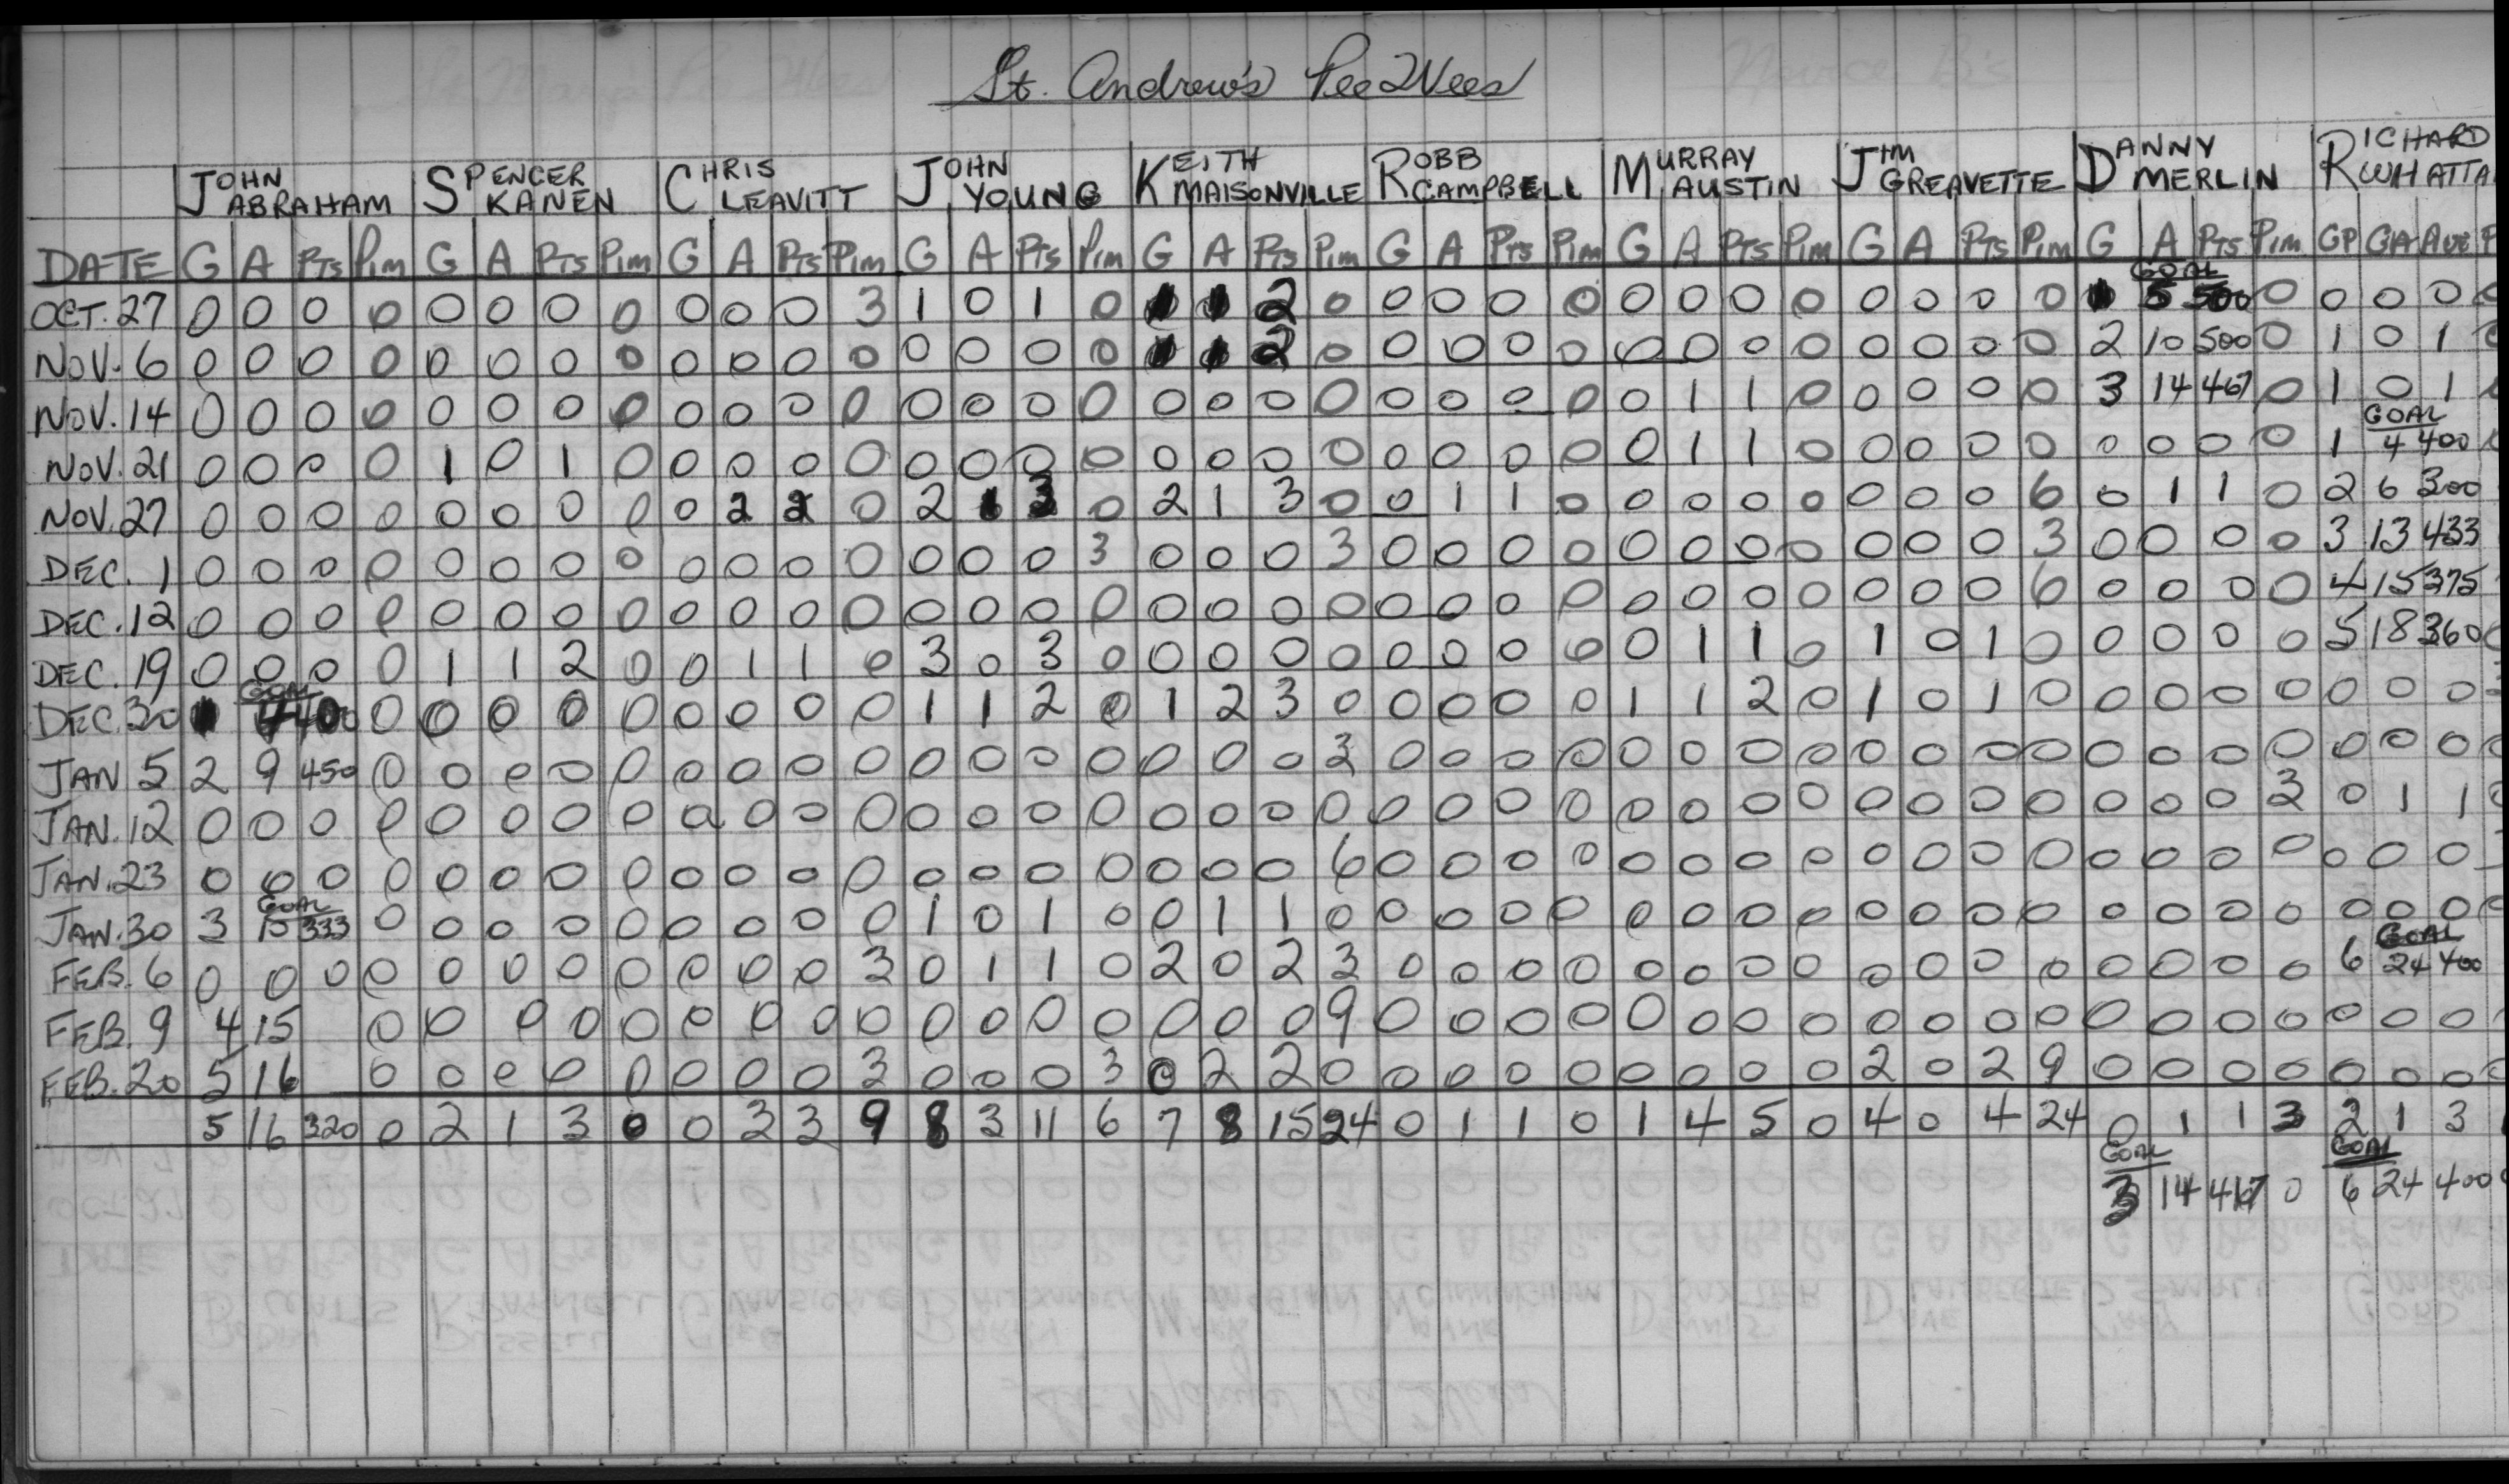 St. Andrew's Pee Wees
JOHN ABRAHAM SPENCER KANEN CHRIS LEAVITT JOHN YOUNG KEITH MAISONVILLE ROBB CAMPBELL MURRAY AUSTIN JIM GREAVETTE DANNY MERLIN RICHARD WHATTA
DATE G A PTS Pim G A PTS Pim G A PTS Pim G A PTS Pim G A PTS Pim G A PTS Pim G A PTS Pim G A PTS Pim G A PTS Pim GP GA AVE P
GOAL
OCT. 27 0 0 0 0 0 0 0 0 0 0 0 3 1 0 1 0 1 1 2 0 0 0 0 0 0 0 0 0 0 0 0 0 1 5 500 0 0 0 0 0
NOV. 6 0 0 0 0 0 0 0 0 0 0 0 0 0 0 0 0 1 1 2 0 0 0 0 0 0 0 0 0 0 0 0 0 2 10 500 0 1 0 1 0
NOV. 14 0 0 0 0 0 0 0 0 0 0 0 0 0 0 0 0 0 0 0 0 0 0 0 0 0 1 1 0 0 0 0 0 3 14 467 0 1 0 1
GOAL
NOV. 21 0 0 0 0 1 0 1 0 0 0 0 0 0 0 0 0 0 0 0 0 0 0 0 0 0 1 1 0 0 0 0 0 0 0 0 0 1 4 400
NOV. 27 0 0 0 0 0 0 0 0 0 2 2 0 2 1 3 0 2 1 3 0 0 1 1 0 0 0 0 0 0 0 0 6 0 1 1 0 2 6 300
DEC. 1 0 0 0 0 0 0 0 0 0 0 0 0 0 0 0 3 0 0 0 3 0 0 0 0 0 0 0 0 0 0 0 3 0 0 0 0 3 13 433
DEC. 12 0 0 0 0 0 0 0 0 0 0 0 0 0 0 0 0 0 0 0 0 0 0 0 0 0 0 0 0 0 0 0 6 0 0 0 0 4 15 375
DEC. 19 0 0 0 0 1 1 2 0 0 1 1 0 3 0 3 0 0 0 0 0 0 0 0 0 0 1 1 0 1 0 1 0 0 0 0 0 5 18 360
GOAL
DEC. 30 1 4 400 0 0 0 0 0 0 0 0 0 1 1 2 0 1 2 3 0 0 0 0 0 1 1 2 0 1 0 1 0 0 0 0 0 0 0 0
JAN 5 2 9 450 0 0 0 0 0 0 0 0 0 0 0 0 0 0 0 0 3 0 0 0 0 0 0 0 0 0 0 0 0 0 0 0 0 0 0 0 0
JAN. 12 0 0 0 0 0 0 0 0 0 0 0 0 0 0 0 0 0 0 0 0 0 0 0 0 0 0 0 0 0 0 0 0 0 0 0 3 0 1 1 0
JAN. 23 0 0 0 0 0 0 0 0 0 0 0 0 0 0 0 0 0 0 0 6 0 0 0 0 0 0 0 0 0 0 0 0 0 0 0 0 0 0 0
GOAL
JAN. 30 3 15 333 0 0 0 0 0 0 0 0 0 1 0 1 0 0 1 1 0 0 0 0 0 0 0 0 0 0 0 0 0 0 0 0 0 0 0 0 0
GOAL
FEB. 6 0 0 0 0 0 0 0 0 0 0 0 3 0 1 1 0 2 0 2 3 0 0 0 0 0 0 0 0 0 0 0 0 0 0 0 0 6 24 400
FEB. 9 4 15 0 0 0 0 0 0 0 0 0 0 0 0 0 0 0 0 9 0 0 0 0 0 0 0 0 0 0 0 0 0 0 0 0 0 0 0
FEB. 20 5 16 0 0 0 0 0 0 0 0 3 0 0 0 3 0 2 2 0 0 0 0 0 0 0 0 0 2 0 2 9 0 0 0 0 0 0 0 0
5 16 320 0 2 1 3 0 0 3 3 9 8 3 11 6 7 8 15 24 0 1 1 0 1 4 5 0 4 0 4 24 0 1 1 3 2 1 3
GOAL GOAL
3 14 467 0 6 24 400